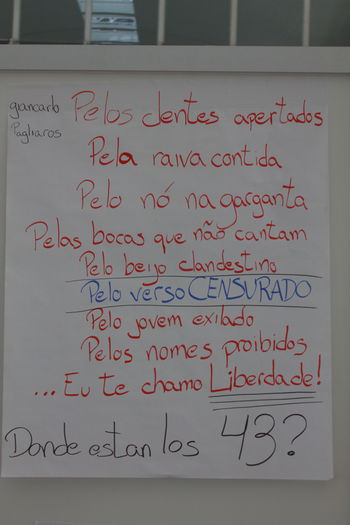 giancarlo
Pagliaros
Pelos dentes apertados
Pela raiva contida
Pelo nó na garganta
Pelas bocas que não cantam
Pelo beijo clandestino
Pelo verso CENSURADO
Pelo jovem exilado
Pelos nomes proibidos
...Eu te chamo Liberdade!
Donde estan los 43?